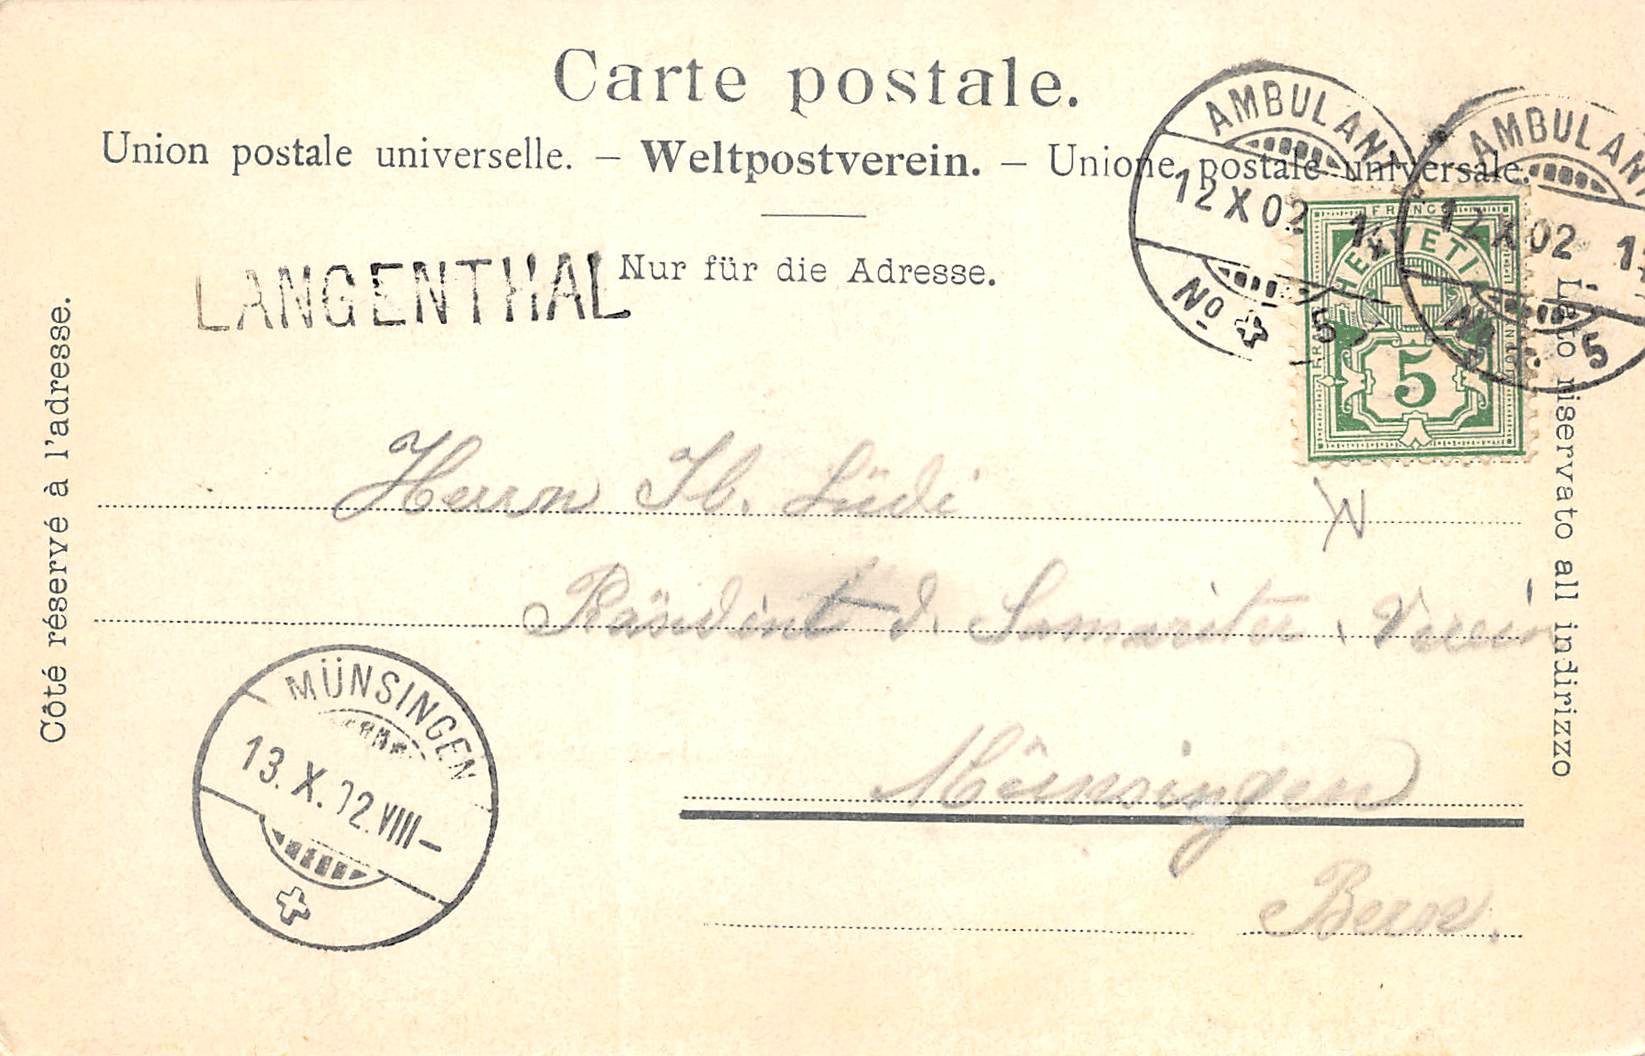 Carte postale.
Union postale universelle. — Weltpostverein. — Unione postale universale.
Nur für die Adresse.
LANGENTHAL
Côté réservé à l'adresse.
Lato riservato all indirizzo
AMBULANT
12 X 02
No 5
AMBULANT
12 X 02
No 5
FRANCO
HELVETIA
5
Herrn Lüdi
Präsident d. Samariter-Verein
Münsingen
Bern.
MÜNSINGEN
13. X. 02. VIII–